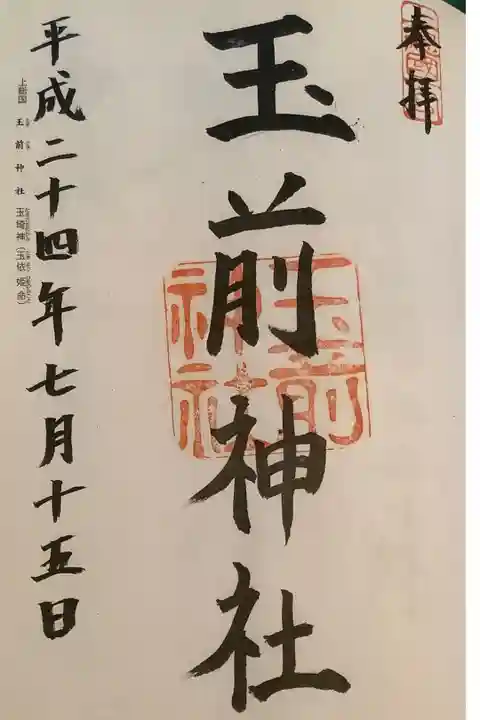 奉拝
玉前神社
玉前
神社
平成二十四年七月十五日
上総国 玉前神社 玉埼神(玉依姫命)